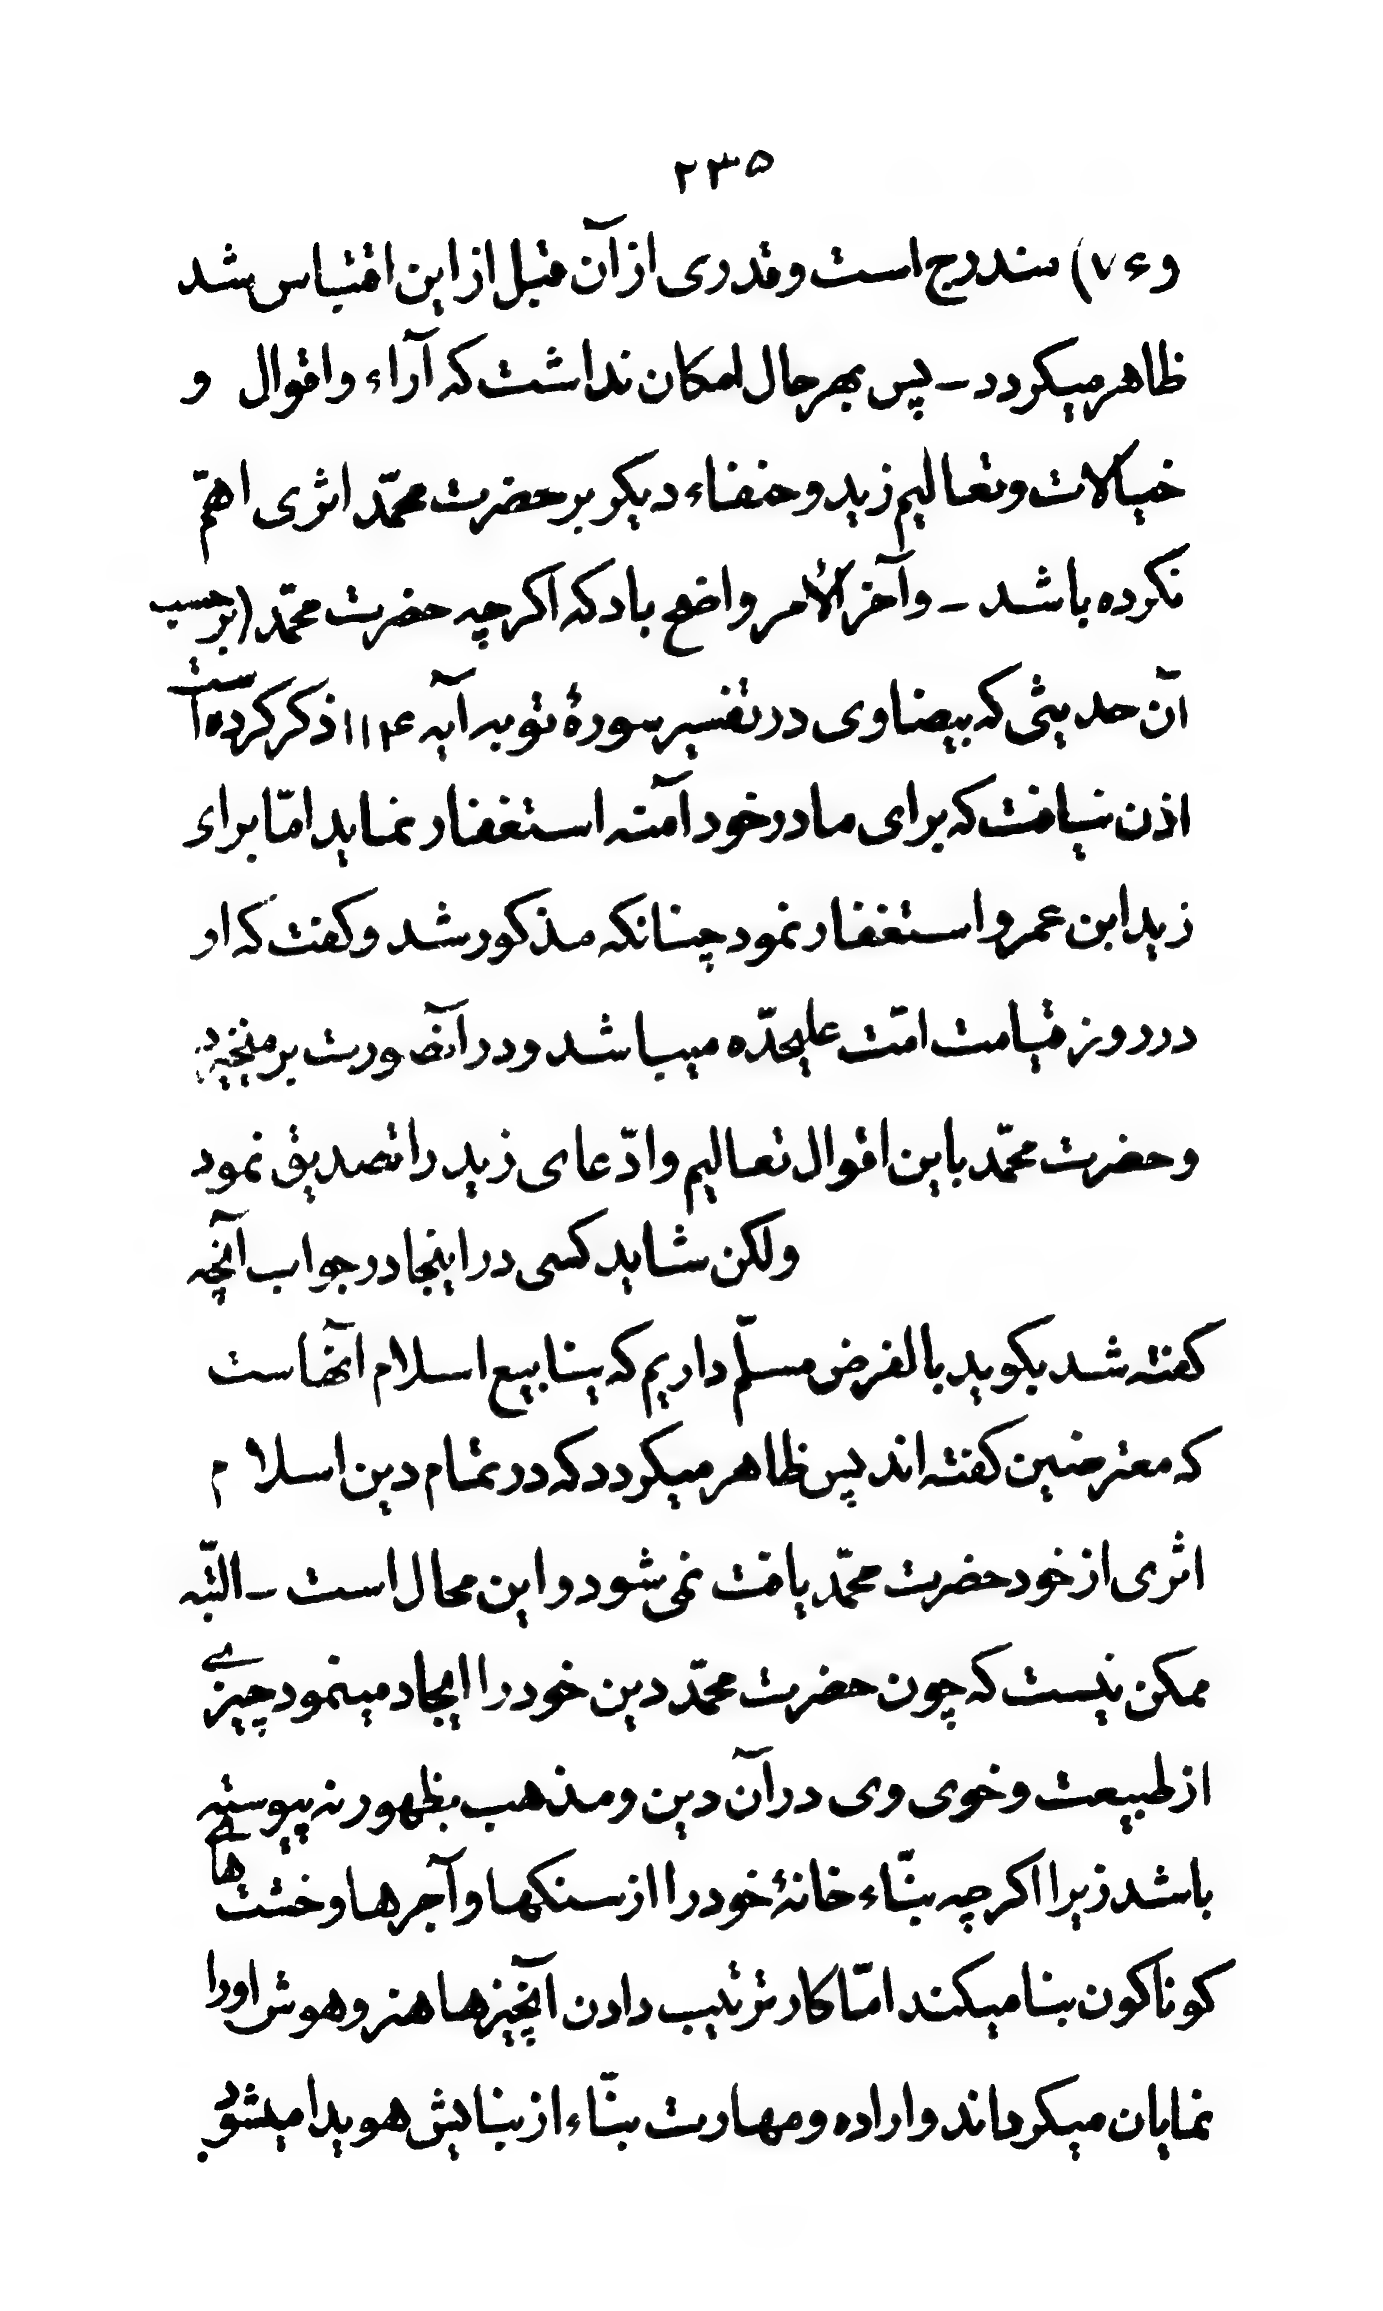 ۲۳۵
و ۷۶) مندرج است و قدری از آن قبل از این اقتباس شد
ظاهر میکردد ـ پس بهر حال امکان نداشت که آراء و اقوال و
خیالات و تعالیم زید و حنفاء دیکر بر حضرت محمّد اثری اهمّ
نکرده باشد ـ و آخر الأمر واضح باد که اکرچه حضرت محمّد (بر حسب
آن حدیثی که بیضاوی در تفسیر سورهٔ توبه آیه ۱۱۴ ذکر کرده است
اذن نیافت که برای مادر خود آمنه استغفار نماید امّا براے
زید ابن عمرو استغفار نمود چنانکه مذکور شد و کفت که او
در روز قیامت امّت علیحدّه میباشد و در آنصورت برمیخیزد
و حضرت محمّد باین اقوال تعالیم و ادّعای زید را تصدیق نمود
ولکن شاید کسی در اینجا در جواب آنچه
کفته شد بکوید بالفرض مسلّم داریم که ینابیع اسلام آنهاست
که معترضین کفته اند پس ظاهر میکردد که در تمام دین اسلام
اثری از خود حضرت محمّد یافت نمی شود و این محال است ـ البتّه
ممکن نیست که چون حضرت محمّد دین خود را ایجاد مینمود چیزے
از طبیعت و خوی وی در آن دین و مذهب بظهور نه پیوسته
باشد زیرا اکرچه بنّاء خانهٔ خود را از سنکها و آجرها و خشت هاے
کوناکون بنا میکند امّا کار ترتیب دادن آنچیزها هنر و هوش او را
نمایان میکرداند و اراده و مهارت بنّاء از بنایش هویدا میشود.